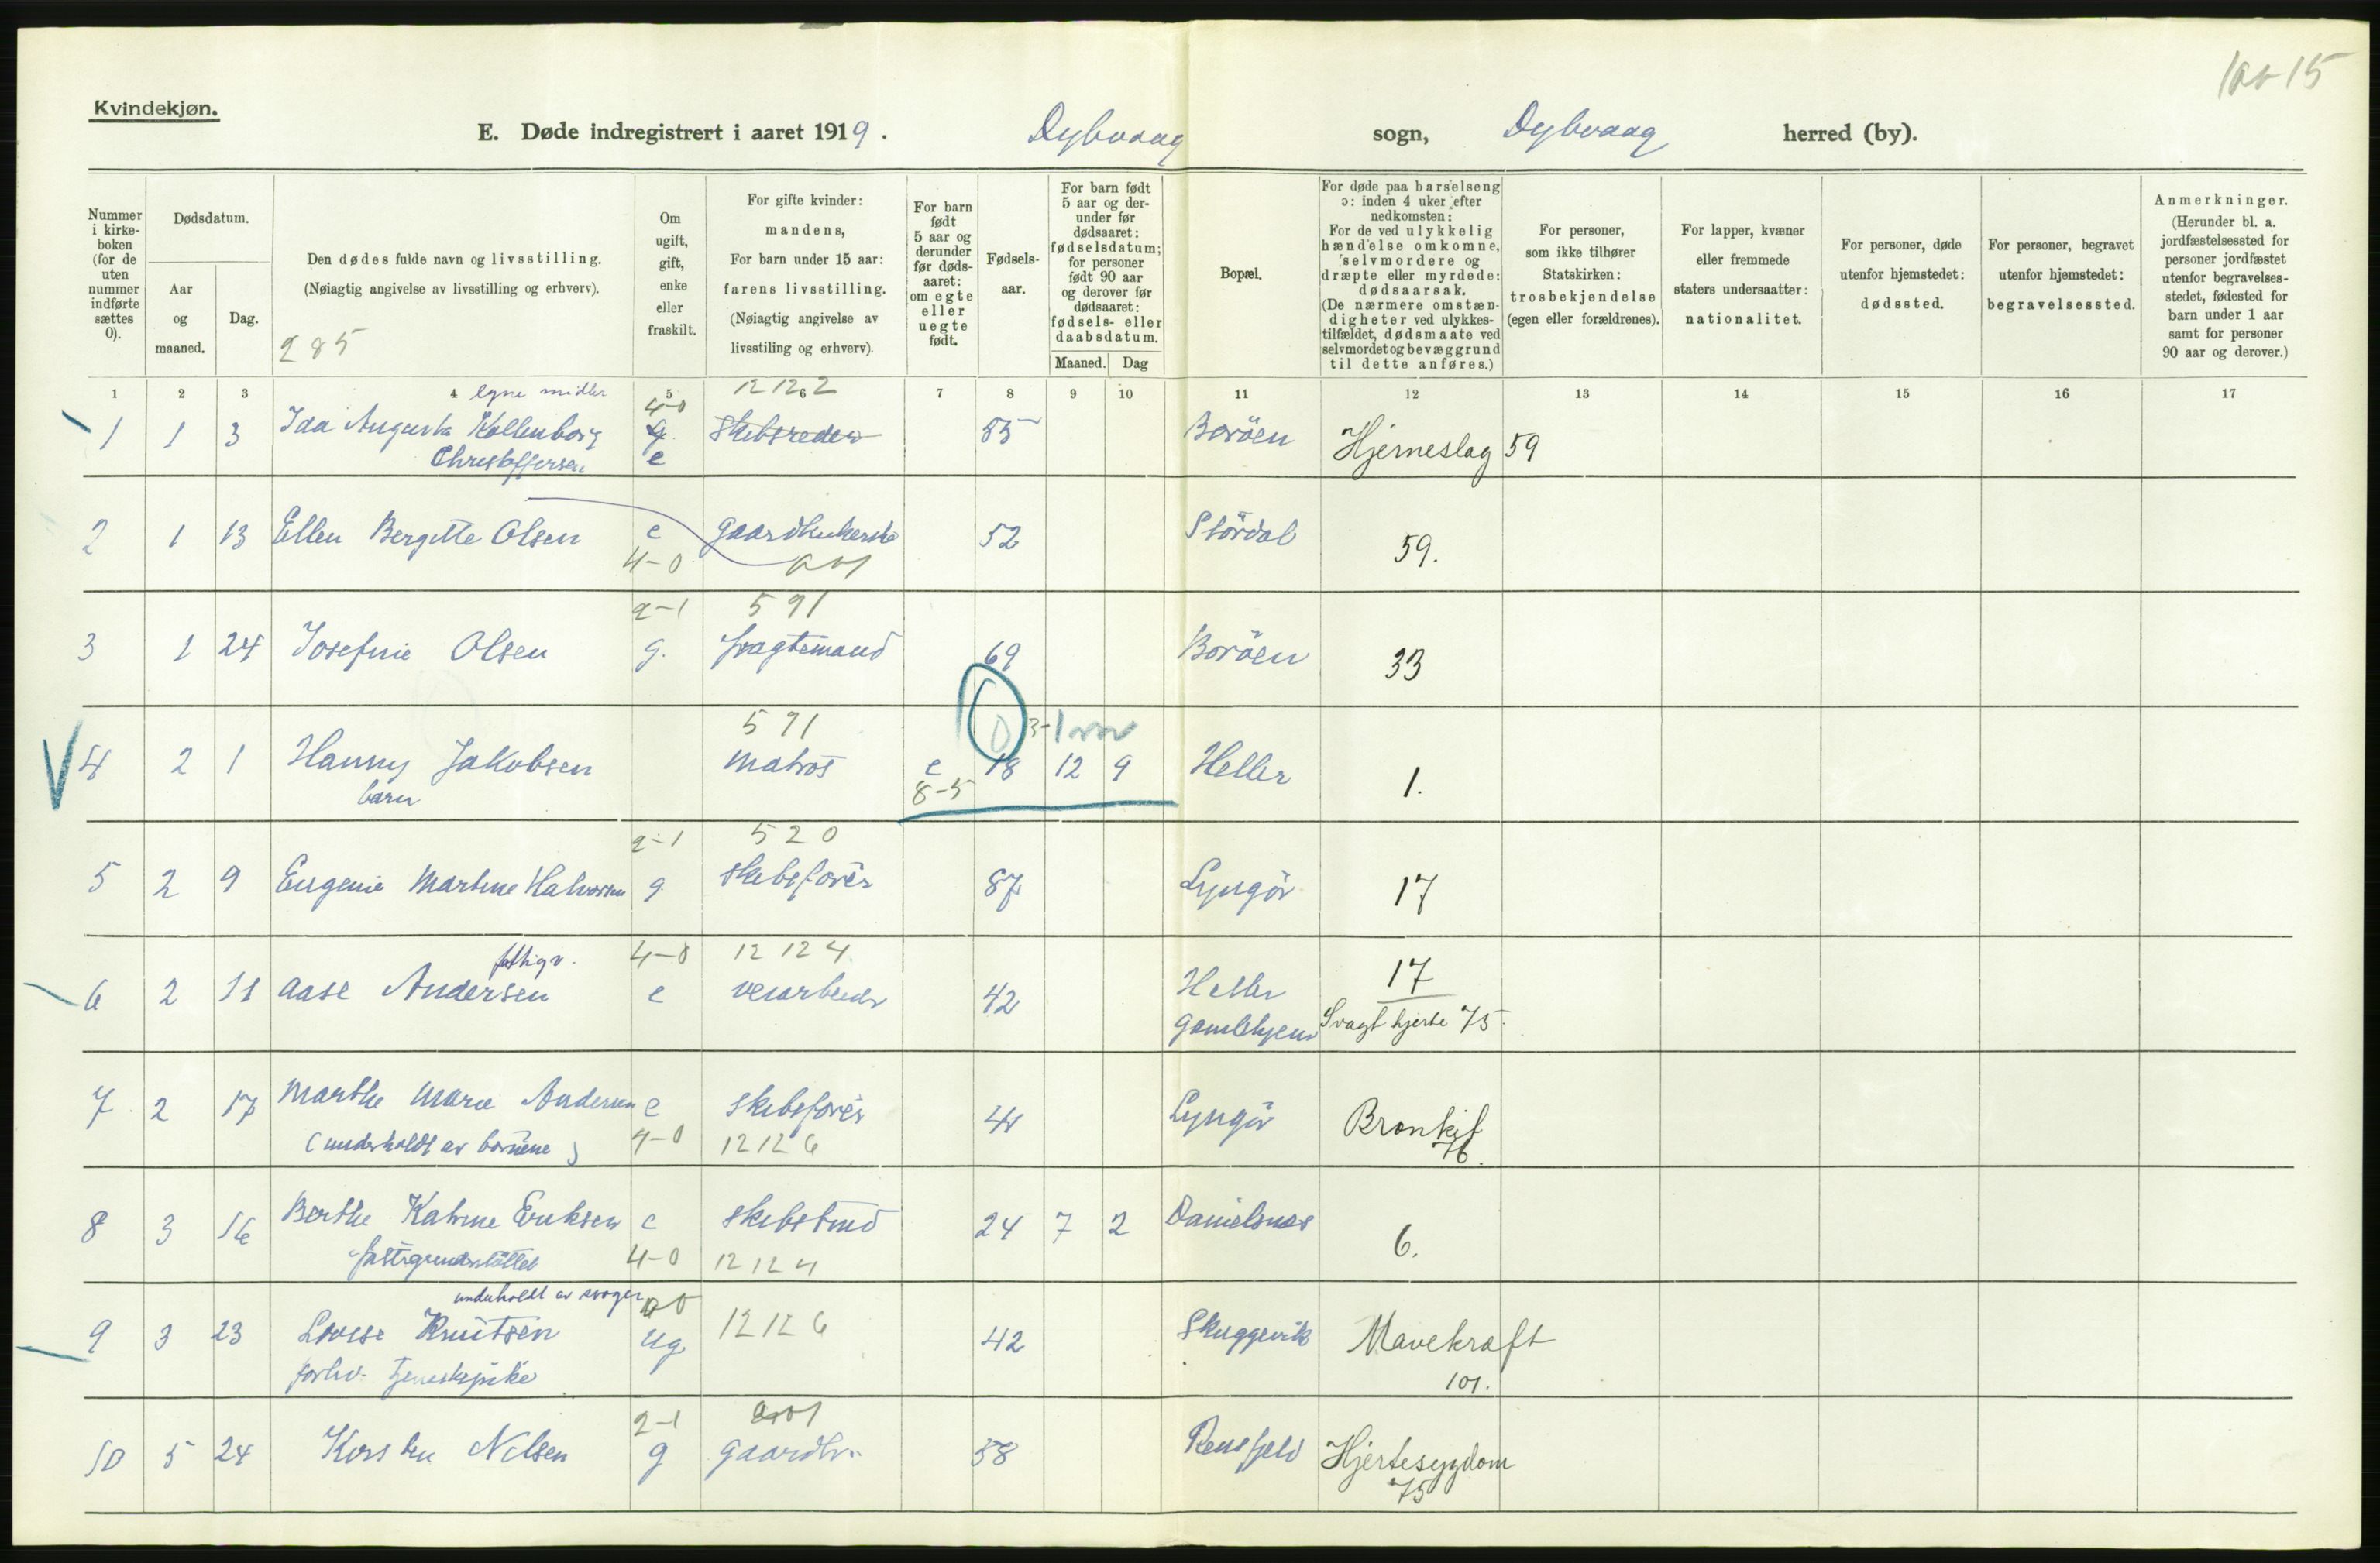 1a-15
Kvindekjøn.
E. Døde indregistrert i aaret 1919. Dybvaag sogn, Dybvaag herred (by).
Nummer i kirkeboken (for de uten nummer indførte sættes 0).
Dødsdatum.
Aar og maaned.
Dag.
Den dødes fulde navn og livsstilling.
(Nøiagtig angivelse av livsstilling og erhverv).
285
Om ugift, gift, enke eller fraskilt.
For gifte kvinder: mandens,
For barn under 15 aar: farens livsstilling.
(Nøiagtig angivelse av livsstiling og erhverv).
For barn født 5 aar og derunder før dødsaaret: om egte eller uegte født.
Fødselsaar.
For barn født 5 aar og derunder før dødsaaret: fødselsdatum; for personer født 90 aar og derover før dødsaaret: fødsels- eller daabsdatum.
Maaned. Dag
Bopæl.
For døde paa barselseng ɔ: inden 4 uker efter nedkomsten:
For de ved ulykkelig hændelse omkomne, selvmordere og dræpte eller myrdede: dødsaarsak.
(De nærmere omstændigheter ved ulykkestilfældet, dødsmaate ved selvmordet og bevæggrund til dette anføres.)
For personer, som ikke tilhører Statskirken: trosbekjendelse (egen eller forældrenes).
For lapper, kvæner eller fremmede staters undersaatter: nationalitet.
For personer, døde utenfor hjemstedet: dødssted.
For personer, begravet utenfor hjemstedet: begravelsessted.
Anmerkninger.
(Herunder bl. a. jordfæstelsessted for personer jordfæstet utenfor begravelsesstedet, fødested for barn under 1 aar samt for personer 90 aar og derover.)
1 2 3 4 5 6 7 8 9 10 11 12 13 14 15 16 17
egne midler 4-0 12 12 2
1 1 3 Ida Augusta Kallenborg g. Skibsreder 55 Borøen Hjerneslag 59
Christoffersen e
2 1 13 Ellen Bergitte Olsen e 52 Størdal 59.
4-0
2-1 591
3 1 24 Josefine Olsen g. fragtemand 69 Borøen 33
591 0
4 2 1 Hanny Jakobsen matros e 18 12 9 Heller 1.
barn 8-5
2-1 520
5 2 9 Eugenie Martine Halvorsen g skibsfører 87 Lyngør 17
fattigv. 4-0 12 12 4
6 2 11 Aase Andersen e veiarbeider 42 Heller 17
Gamlehjem Svagt hjerte 75.
7 2 17 Marthe Marie Andersen e skibsfører 44 Lyngør Bronkit
(underholdt av børnene) 4-0 12 12 6 76.
8 3 16 Berthe Katrine Eriksen e skibstmd 24 7 2 Danielsnes 6.
fattigunderstøttet 4-0 12 12 4
underholdt av svoger
9 3 23 Lovise Knutsen ug. 12 12 6 42 Skuggevik Mavekræft
forhv. tjenestepike 101.
2-1
10 5 24 Kirsten Nilsen g gaardbr. 58 Rensfjeld Hjertesygdom
75